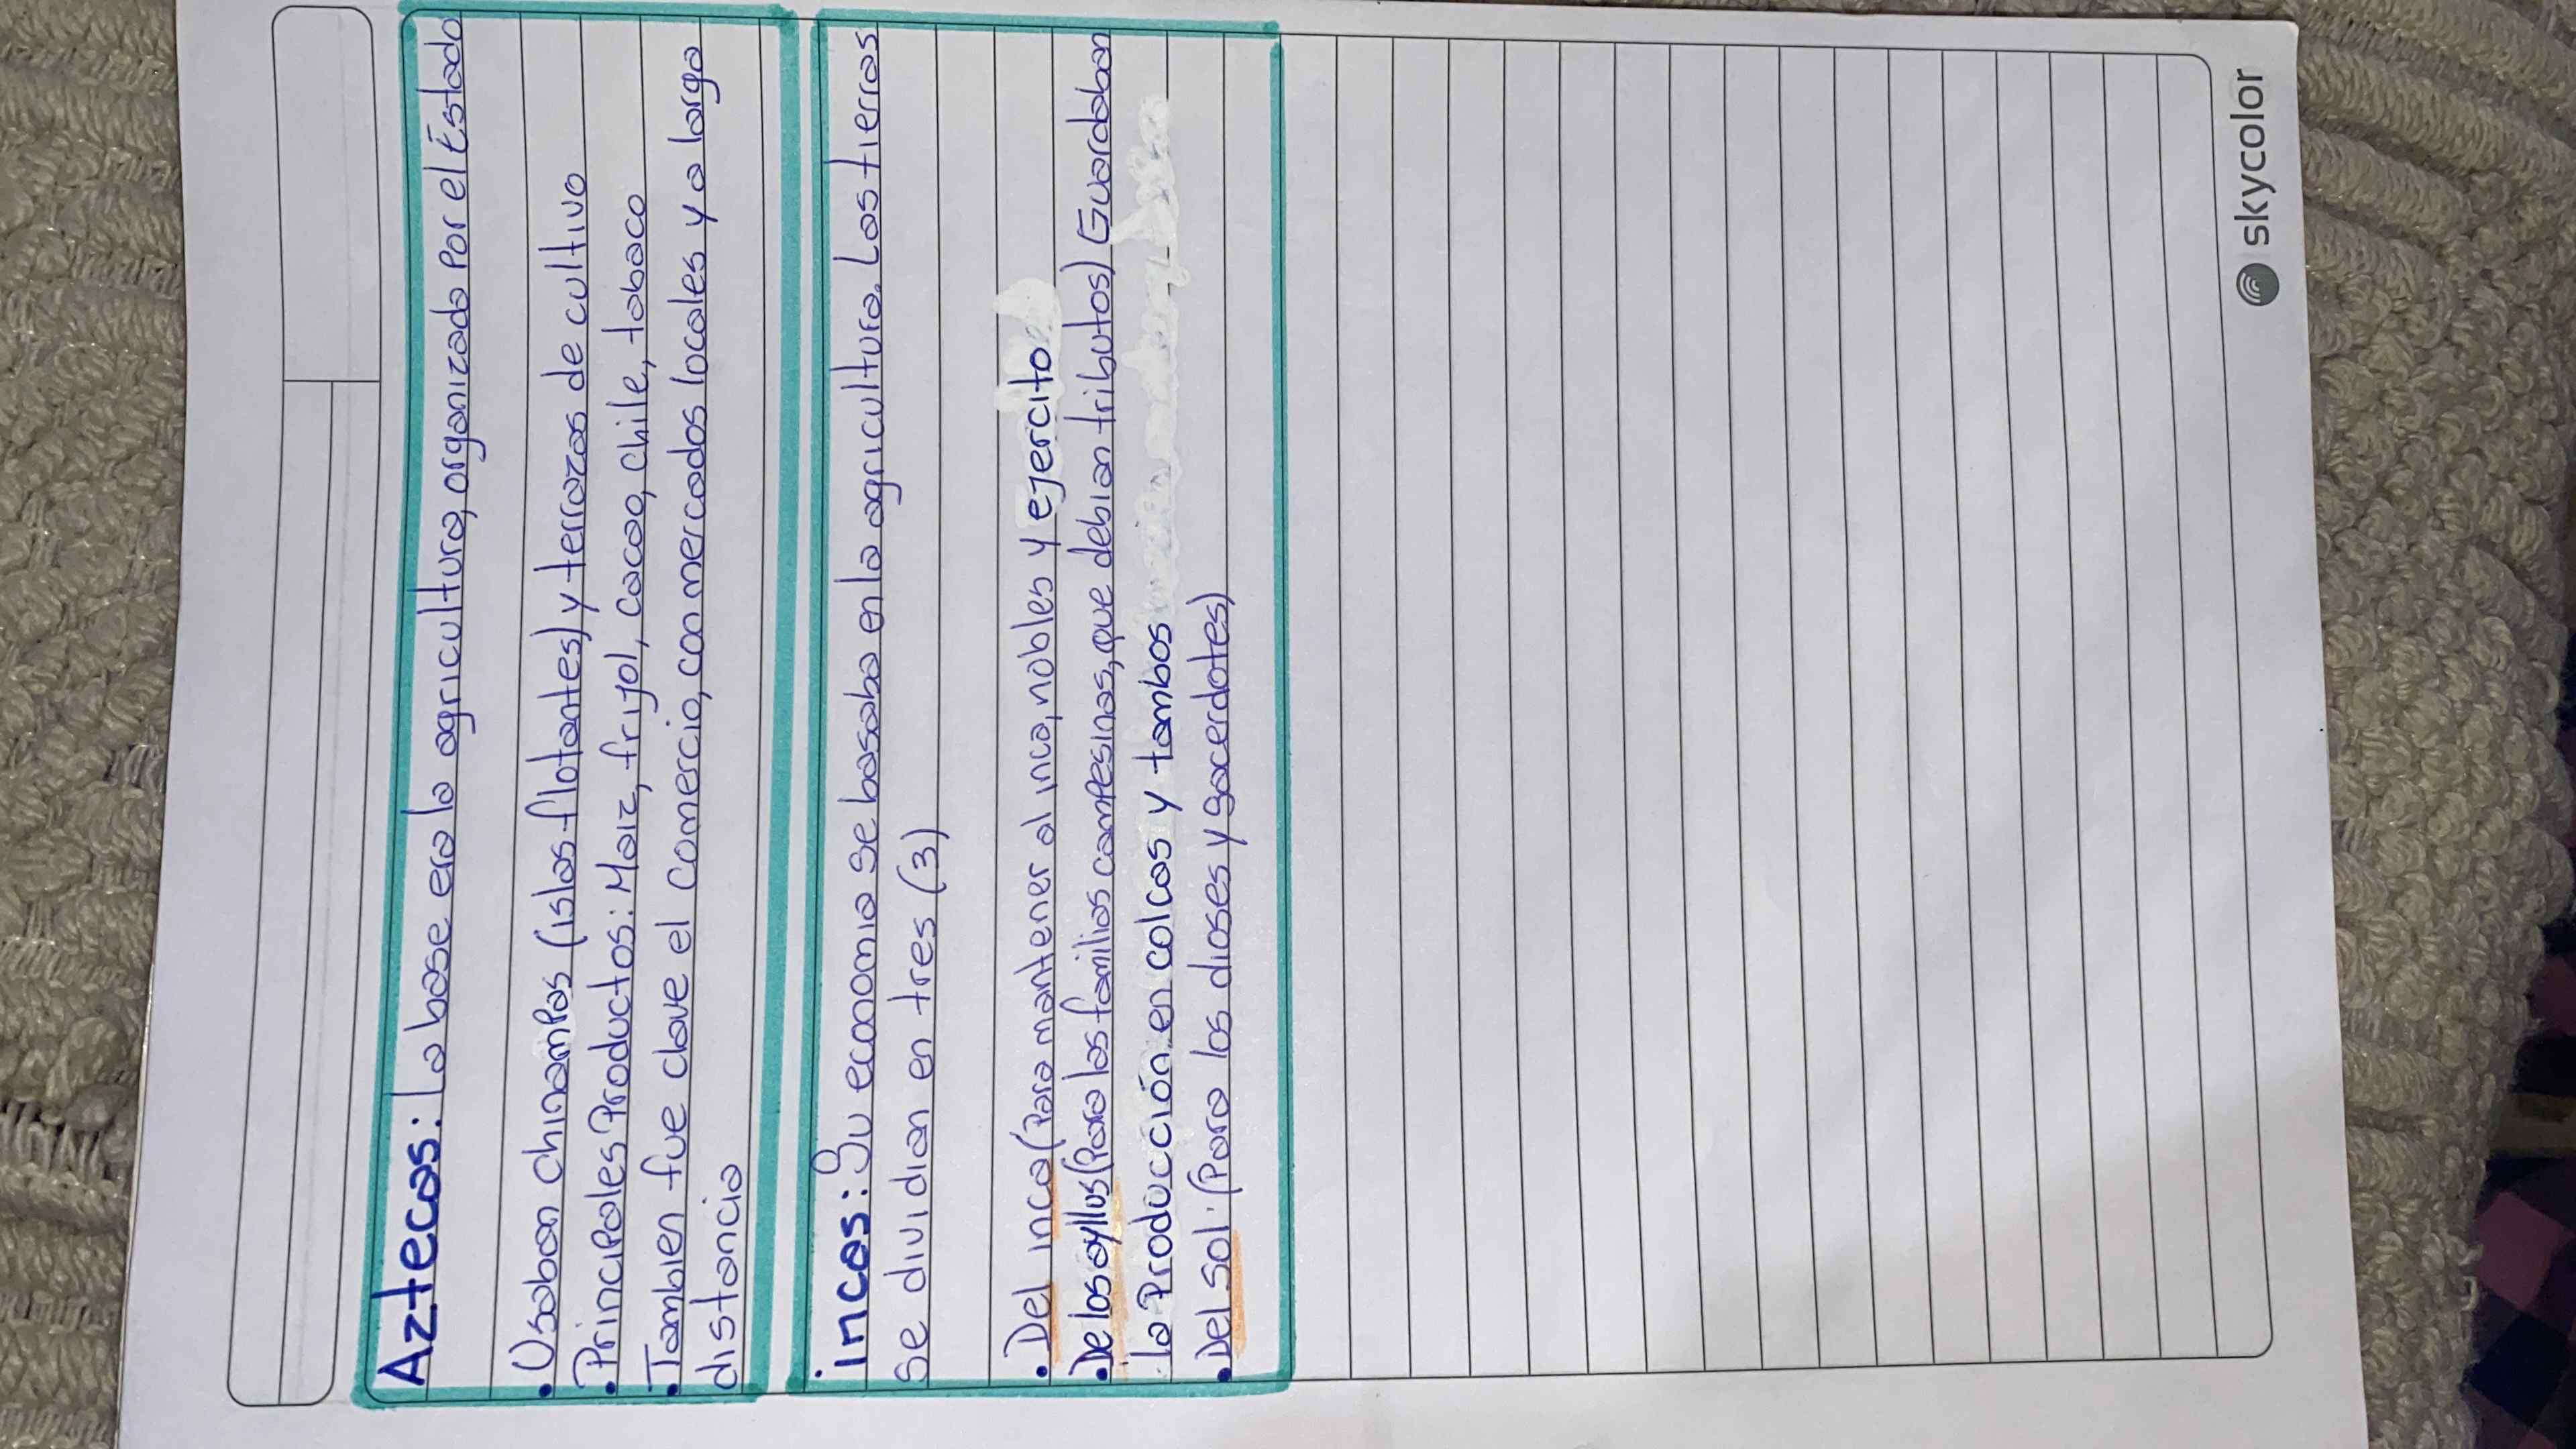 Aztecas: La base era la agricultura, organizada por el Estado
• Usaban chinampas (islas flotantes) y terrazas de cultivo
• Principales Productos: Maiz, frijol, cacao, chile, tabaco
• Tambien fue clave el comercio, con mercados locales y a larga
distancia
incas: Su economia se basaba en la agricultura. Las tierras
se dividian en tres (3)
• Del inca (Para mantener al inca, nobles y ejercito
• De los ayllus (Para las familias campesinas, que debian tributos) Guardaban
la Producción en colcas y tambos
• Del sol (Para los dioses y sacerdotes)
skycolor